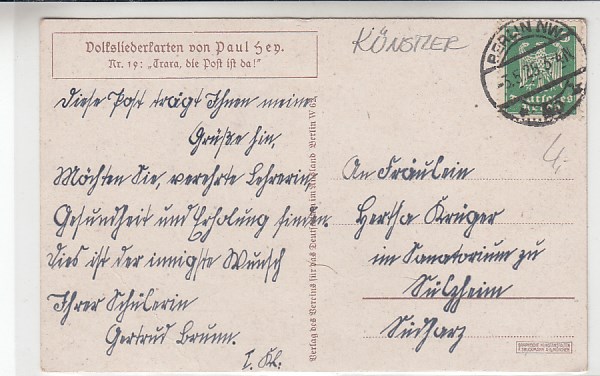 Volksliederkarten von Paul Hey.
Nr. 19: „Trara, die Post ist da!"
KÜNSTLER
BERLIN NW
Deutsches
Reich
4,-
Diese Post trägt Ihnen meine
Grüße hin,
Möchten Sie, verehrte Lehrerin,
Gesundheit und Erholung finden.
Dies ist der innigste Wunsch
Ihrer Schülerin
Gertrud Brunn.
I. Kl.
Verlag des Vereins für das Deutschtum im Ausland Berlin W 62
An Fräulein
Hertha Krüger
im Sanatorium zu
Sülzheim
Südharz
GRAPHISCHE KUNSTANSTALTEN
F. BRUCKMANN A.G. MÜNCHEN